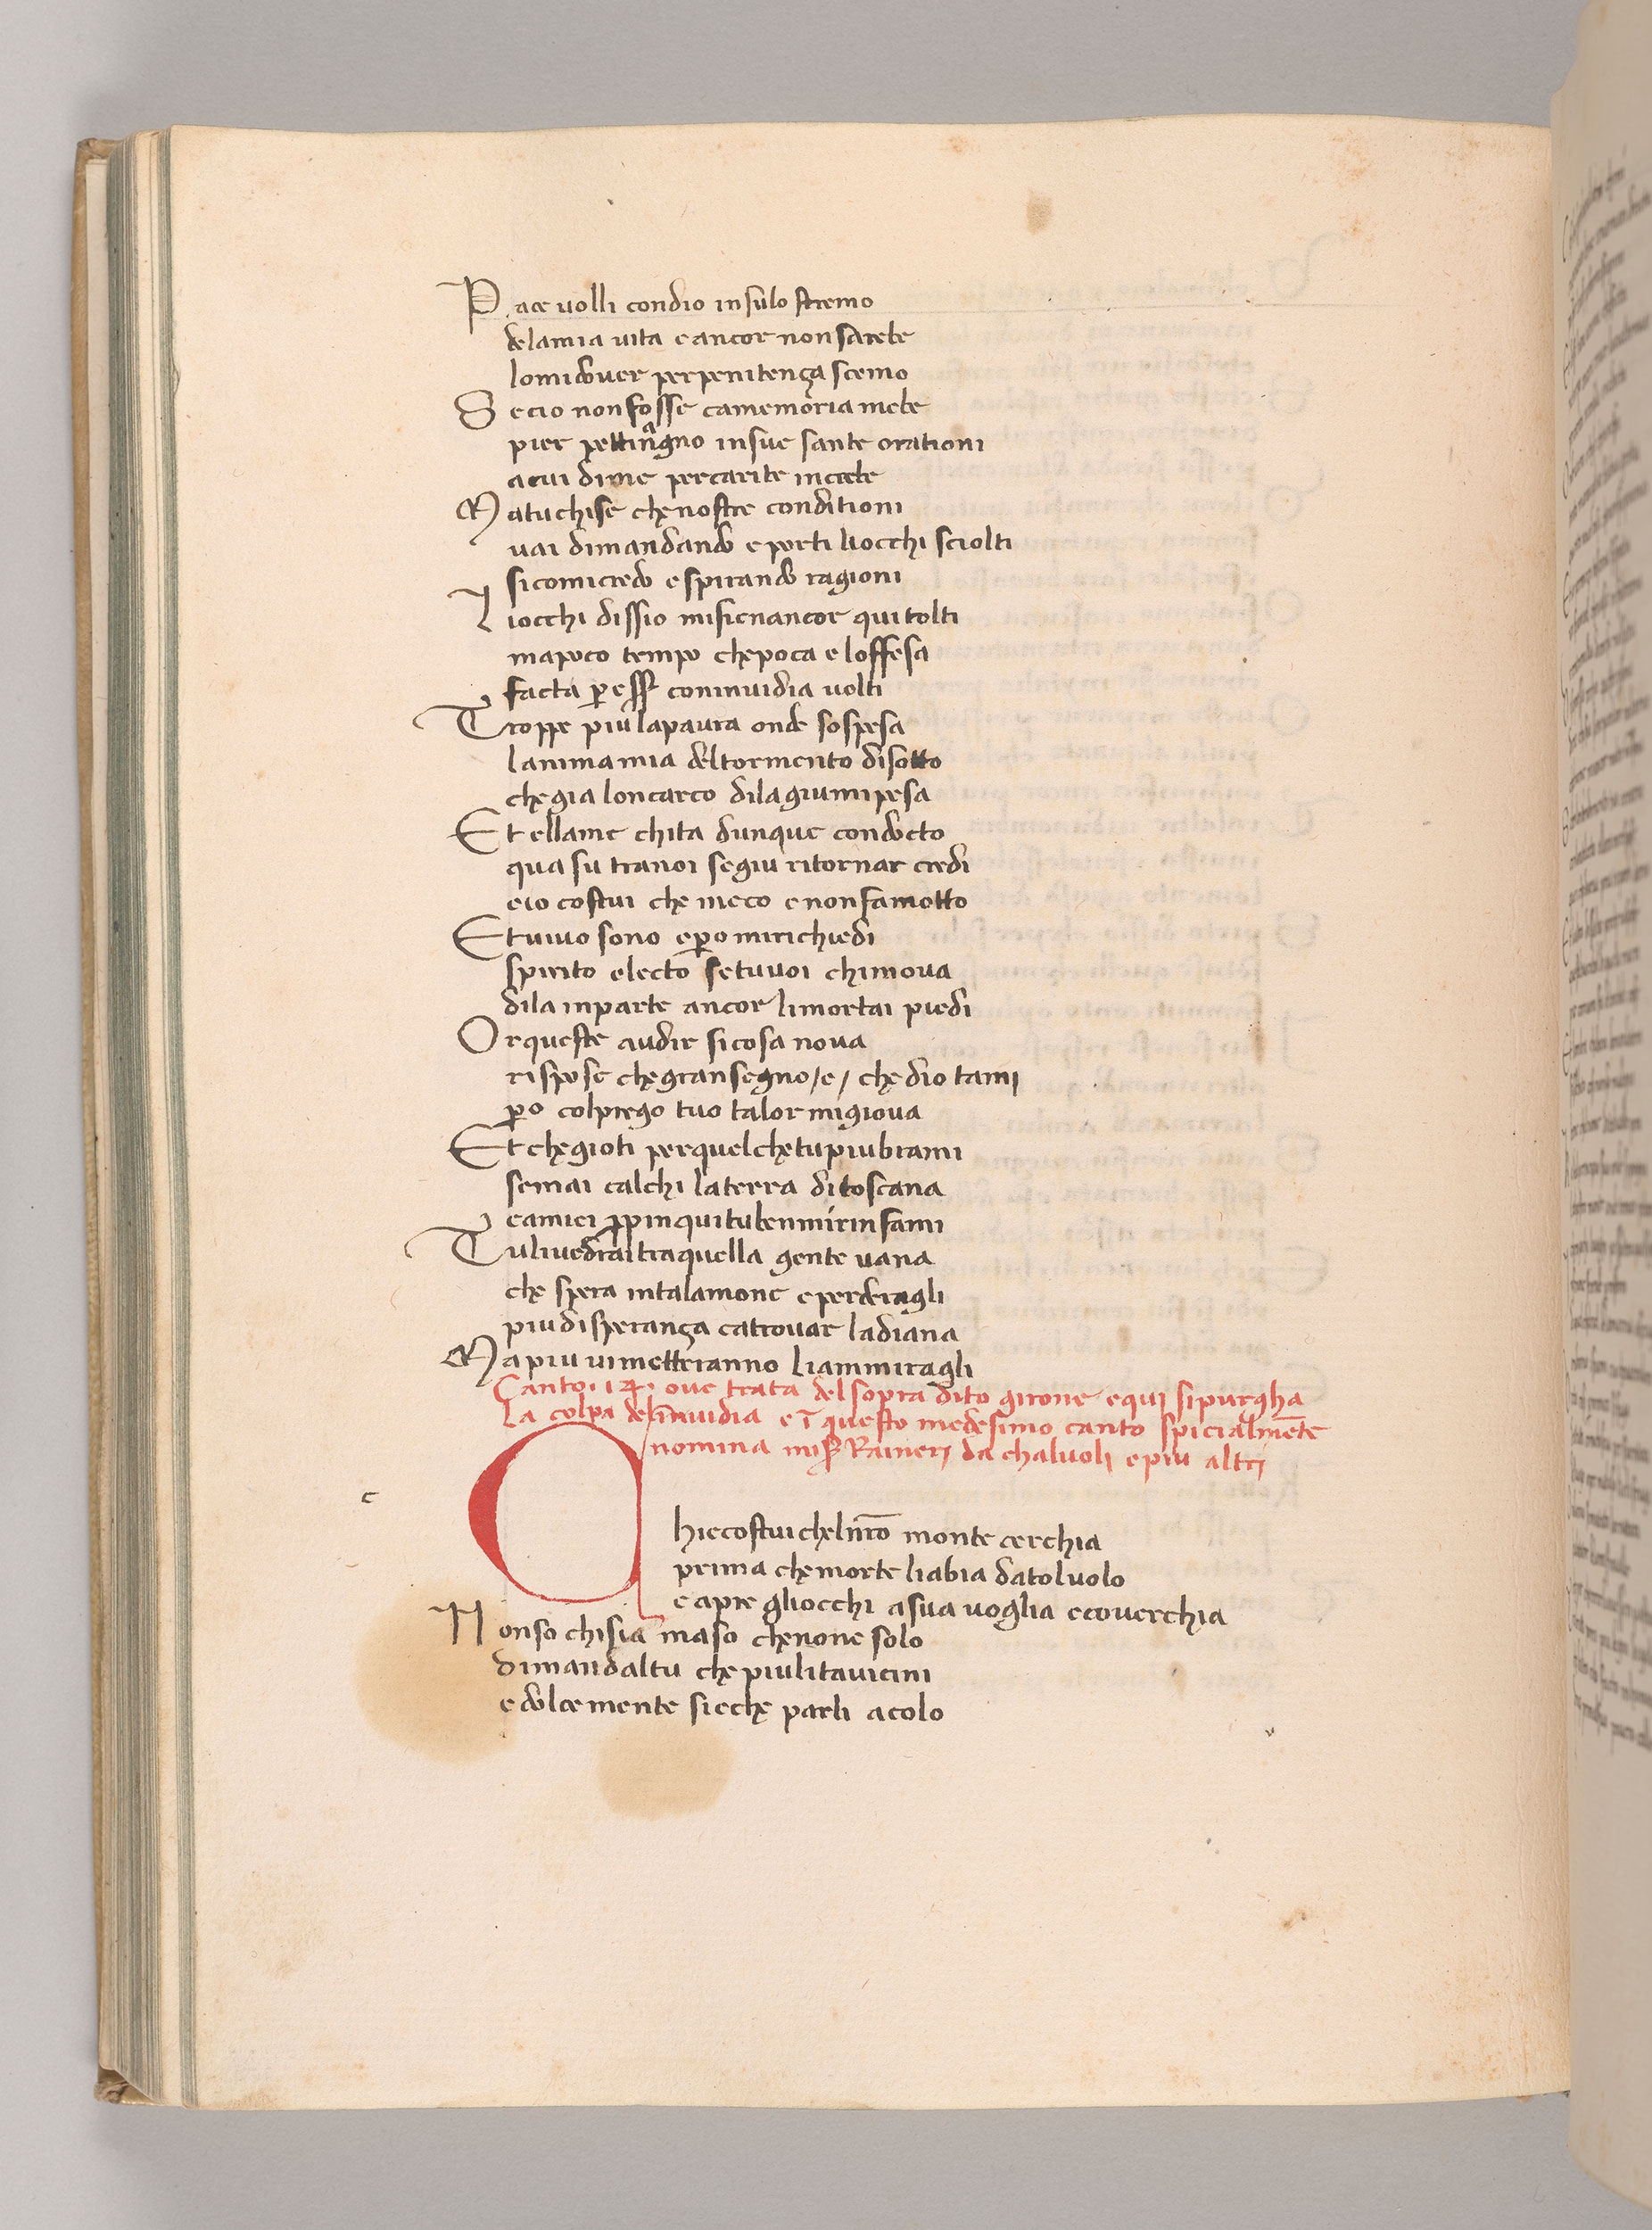 Pace uolli condio insulo stremo
delamia uita e ancor non sarebe
lomidouer per penitença scemo
Secio non fosse camemoria mebe
pier pettinagno insue sante orationi
acui dime per carite increbe
Matuchise chenostre conditioni
uai dimandando e porti liocchi sciolti
sicomicredo espirando ragioni
Iiocchi dissio misienancor qui tolti
mapoco tempo chepoca eloffesa
facta p esser coninuidia uolti
Troppe piu lapaura onde sospesa
lanima mia deltormento disotto
chegia loncarco dilagiumipesa
Et ellame chita dunque condocto
qua su tranoi segiu ritornar credi
eio costui che meco enonfamotto
Et uiuo sono epo mirichiedi
spirito electo setuuoi chimoua
dila inparte ancor limortai piedi
Or queste audir sicosa noua
rispose chegransegno/e/ che dio tami
po colprego tuo talor migioua
Et chegioti perquelchetupiubrami
semai calchi laterra ditoscana
eamiei ppinquitubenmirinfami
Tuliuedrai traquella gente uana
che spera intalamone eperderagli
piudisperança catrouar ladiana
Mapiu uimetteranno liammiragli
Canto .14. oue trata del sopra dito girone equi sipurgha
La colpa delinuidia e ī questo medesimo canto spicialmēte
nomina miser Raineri da chaluoli epiu altri
c
Chiecostui chelnrō monte cerchia
prima chemorte liabia datoluolo
e apre gliocchi asua uoglia ecouerchia
Nonso chisia maso chenone solo
dimandaltu che piulitauicini
edolcemente sieche parli acolo